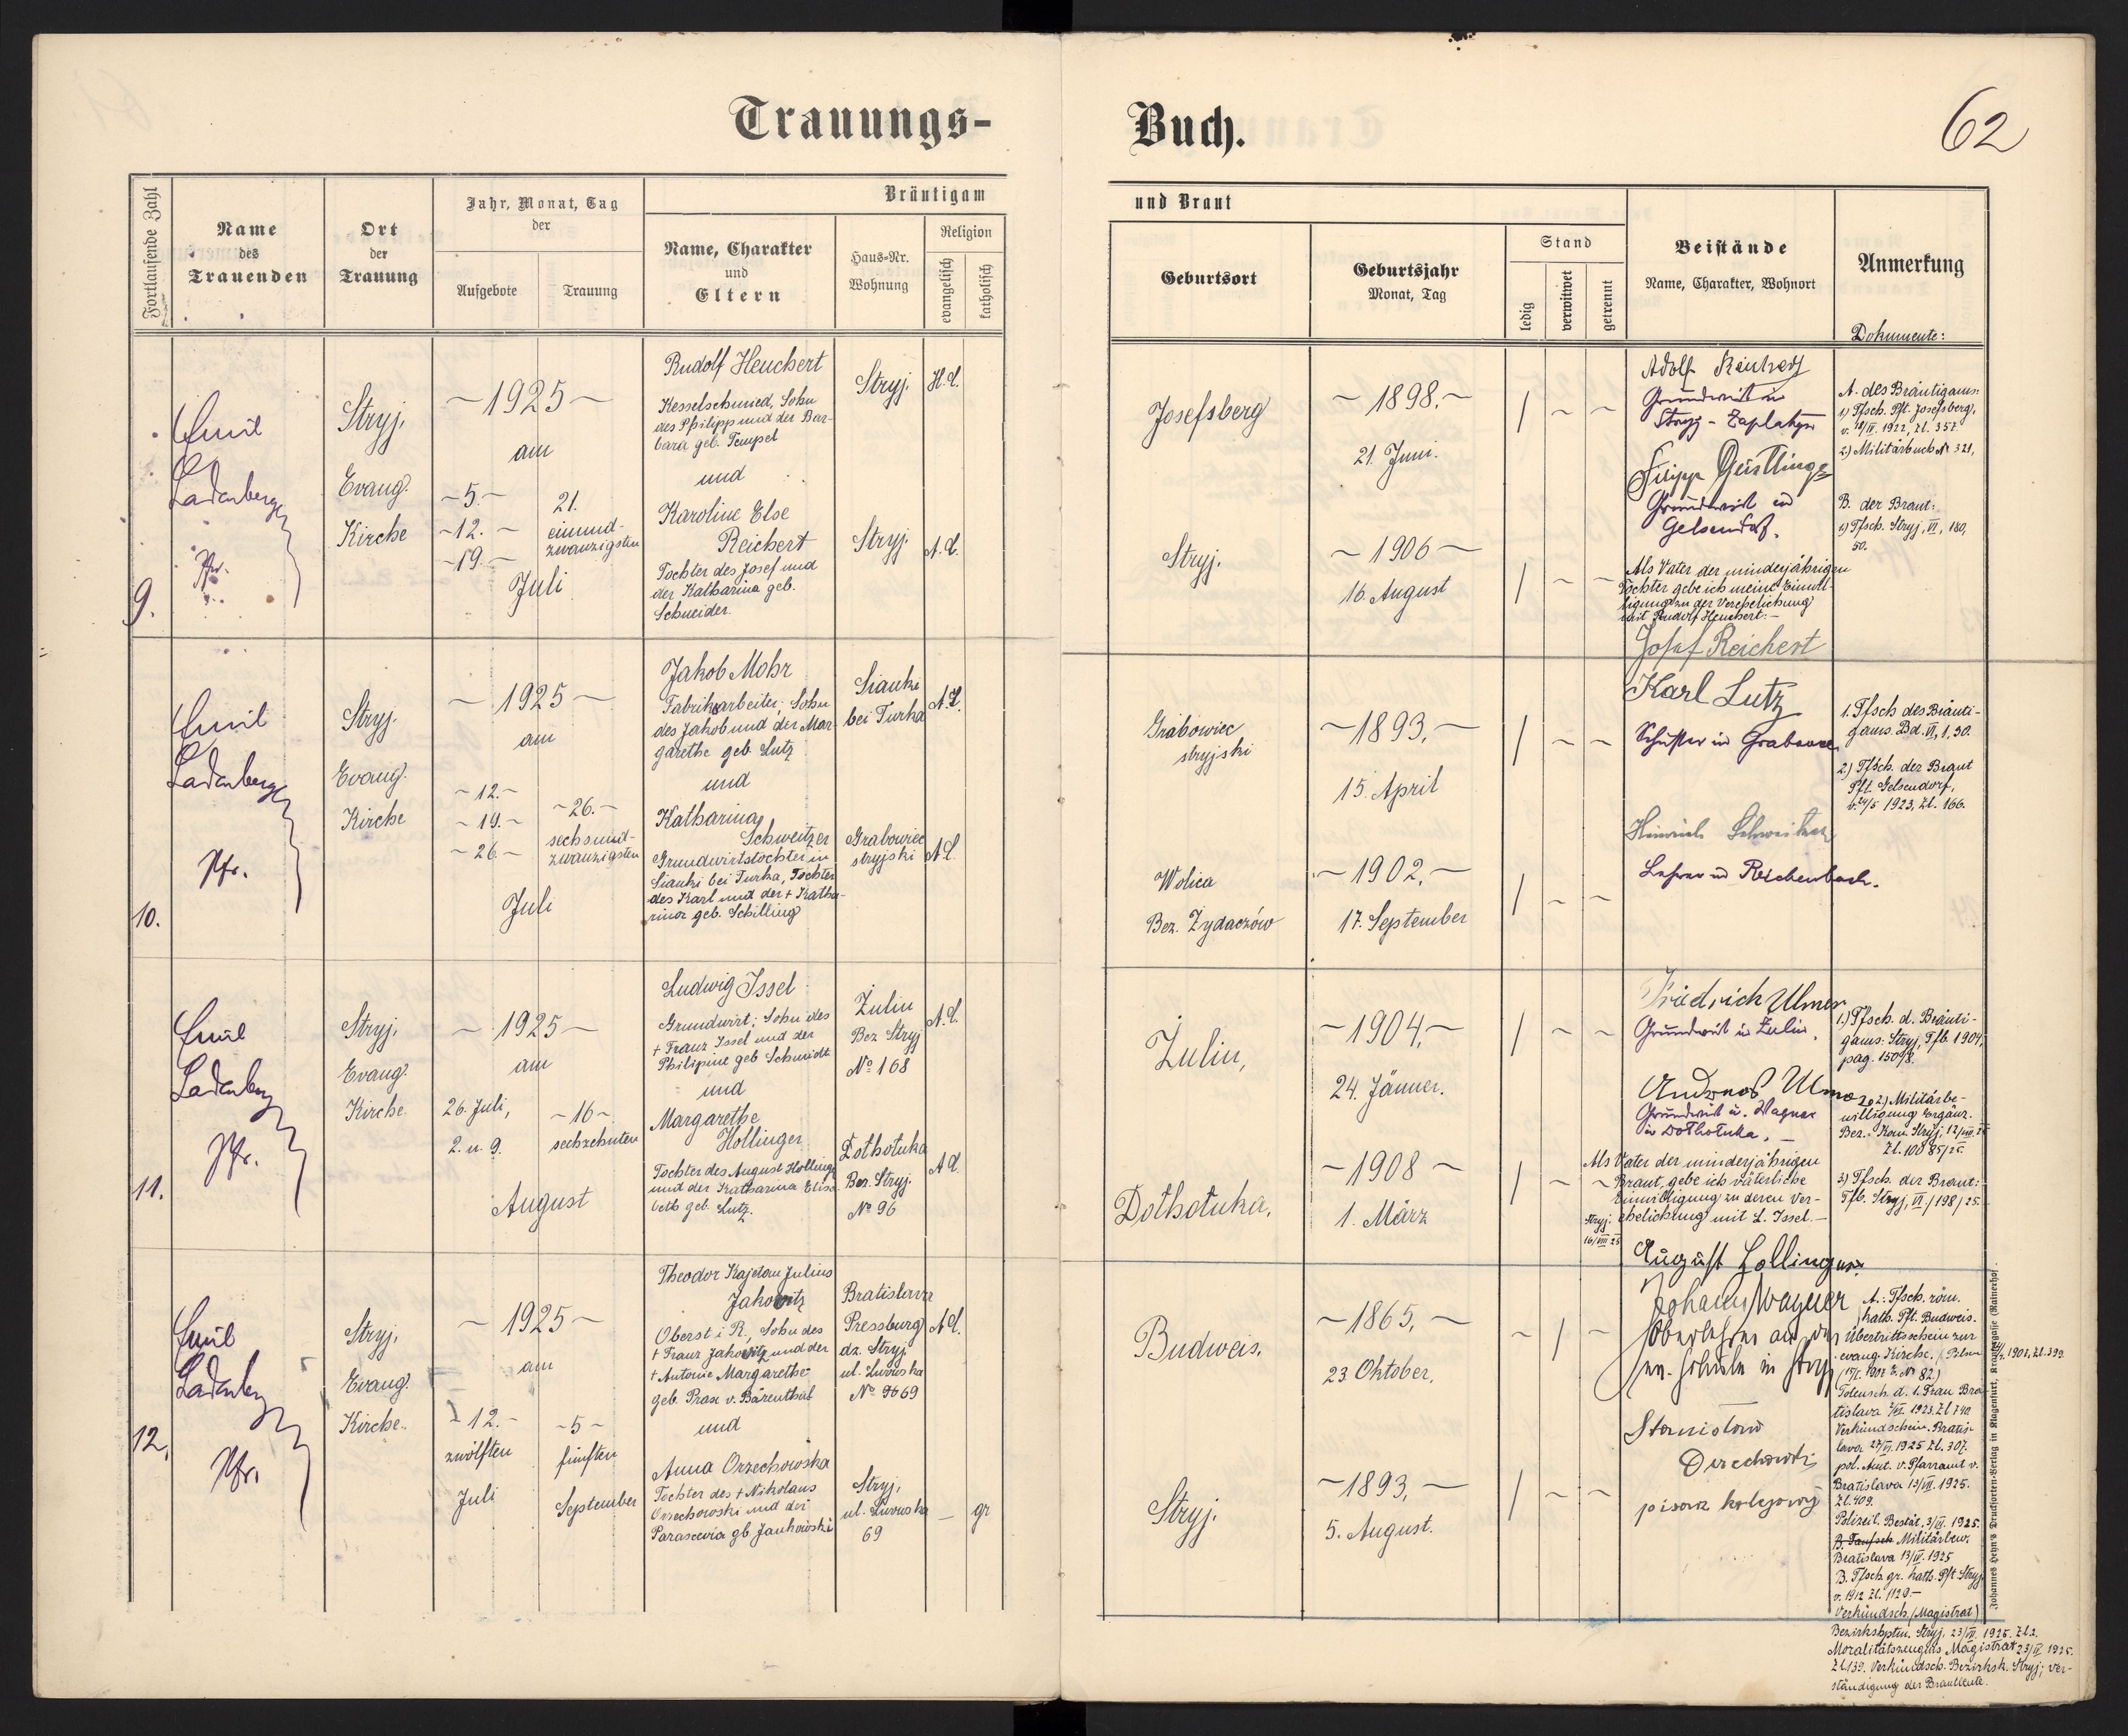 Trauungs-
Buch.
62
Fortlaufende Zahl
Name
des
Trauenden
Ort
der
Trauung
Jahr, Monat, Tag
der
Aufgebote
Trauung
Bräutigam
Name, Charakter
und
Eltern
Haus-Nr.
Wohnung
Religion
evangelisch
katholisch
und Braut
Geburtsort
Geburtsjahr
Monat, Tag
Stand
ledig
verwitwet
getrennt
Beistände
Name, Charakter, Wohnort
Anmerkung
Dokumente:
9.
Emil
Ladenberger
Pfr.
Stryj,
Evang.
Kirche
~ 1925 ~
am
~ 5. ~
~ 12. ~
~ 19. ~
21.
einund-
zwanzigsten
Juli
Rudolf Heuchert
Kesselschmied, Sohn
des Philipp und der Bar-
bara geb. Tempel
und
Karoline Else
Reichert
Tochter des Josef und
der Katharina geb.
Schneider.
Stryj.
H.C.
Stryj.
A.C.
Josefsberg
~ 1898. ~
21. Juni.
/ ~ ~
Stryj.
~ 1906 ~
16. August
/ ~ ~
Adolf
Grundwirt in
Stryj - Zaplatyn
Filipp
Grundwirt in
Gelsendorf.
Als Vater der minderjährigen
Tochter gebe ich meine Einwil-
ligung zu der Verehelichung
mit Rudolf Heuchert. —
Josef Reichert
A. des Bräutigams:
1) Tfsch. Pft. Josefsberg,
1922, Zl. 357.
2) Militärbuch Nr 321,
B. der Braut:
1) Tfsch. Stryj, VI, 180,
50.
10.
Emil
Ladenberger
Pfr.
Stryj.
Evang.
Kirche
~ 1925 ~
am
~ 12. ~
~ 19. ~
~ 26. ~
~ 26. ~
sechsund-
zwanzigsten
Juli
Jakob Mohr
Fabriksarbeiter, Sohn
des Jakob und der Mar-
garethe geb. Lutz
und
Katharina
Schweitzer
Grundwirtstochter in
Sianki bei Turka, Tochter
des Karl und der + Katha-
rina geb. Schilling
Sianki
bei Turka
A.C.
Grabowiec
stryjski
A.C.
Grabowiec
stryjski
~ 1893, ~
15. April
/ ~ ~
Wolica
Bez. Żydaczów
~ 1902, ~
17. September
/ ~ ~
Karl Lutz
Schuster in
Heinrich Schweitzer
Lehrer in Reichenbach.
1. Tfsch des Bräuti-
gams. Bd. VI, 1, 30.
2) Tfsch. der Braut
Pft. Gelsendorf,
1923, Zl. 166.
11.
Emil
Ladenberger
Pfr.
Stryj,
Evang.
Kirche.
~ 1925 ~
am
26. Juli,
2. u. 9.
~ 16 ~
sechzehnten
August
Ludwig Issel
Grundwirt; Sohn des
+ Franz Issel und der
Philipine geb Schmidt
und
Margarethe
Hollinger
Tochter des August Hollinger
und der Katharina Elisa-
beth geb. Lutz.
Żulin
Bez Stryj
No 168
A.C.
Dołhołuka
Bez. Stryj.
No 96
A.C.
Żulin,
~ 1904, ~
24. Jänner.
/ ~ ~
Dołhołuka,
~ 1908 ~
1. März
/ ~ ~
Friedrich Ulmer
Grundwirt in Żulin.
Andreas Ulmer
Grundwirt u. Wagner
in Dołhołuka. —
Als Vater der minderjährigen
Braut, gebe ich väterliche
Einwilligung zu deren Ver-
ehelichung mit L. Issel. —
Stryj.
16/VIII 25
August Hollinger
1.) Tfsch. d. Bräuti-
gams: Stryj, Tfb. 1904,
pag. 150/8.
2) Militärbe-
willigung Ergänz.
Bez. Kom. Stryj, 12/VIII 25
Zl. 10085/25.
3) Tfsch. der Braut:
Tfb. Stryj, VI / 198 / 25.
12.
Emil
Ladenberger
Pfr.
Stryj,
Evang.
Kirche.
~ 1925 ~
am
~ 12. ~
zwölften
Juli
~ 5 ~
fünften
September
Theodor Kajetan Julius
Jakowitz
Oberst i R., Sohn des
+ Franz Jakowitz und der
+ Antonie Margarethe
geb. Prax v. Bärenthal
und
Anna Orzechowska
Tochter des + Nikolaus
Orzechowski und der
Parascewia gb Jankowski
Bratislava
Pressburg
dz. Stryj
ul. Lwowska
No 69
A.C.
Stryj,
ul. Lwowska
69
— gr
Budweis,
~ 1865, ~
23. Oktober,
~ / ~
Stryj.
~ 1893, ~
5. August.
/ ~ ~
Johann Wagner
Oberlehrer an der
ev. Schule in Stryj
Stanisław
pisarz kolejowy
A.: Tfsch. röm.
kath. Pft. Budweis.
Übertrittsschein zur
evang. Kirche.
Totensch. d. 1. Frau Bra-
tislava 1923. Zl 740
Verkündschein. Bratis-
lava 27/VI. 1925 Zl. 307.
pol. Amt. v. Pfarramt v.
Bratislava 13/VII. 1925.
Zl. 409.
Polizeil. Bestät. 1925.
B. Taufsch Militärbew.
Bratislava 1925
B. Tfsch. gr. kath. Pft Stryj
v. 1912 Zl. 1120 —
Verkündsch. (Magistrat)
Bezirkshptm. Stryj, 1925. Zl 2.
Moralitätszeugnis Magistrat 1925.
Zl. 139. Verkündsch. Bezirksk. Stryj; Ver-
ständigung der Brautleute.
Johannes Heyn's Drucksorten-Verlag in Klagenfurt,